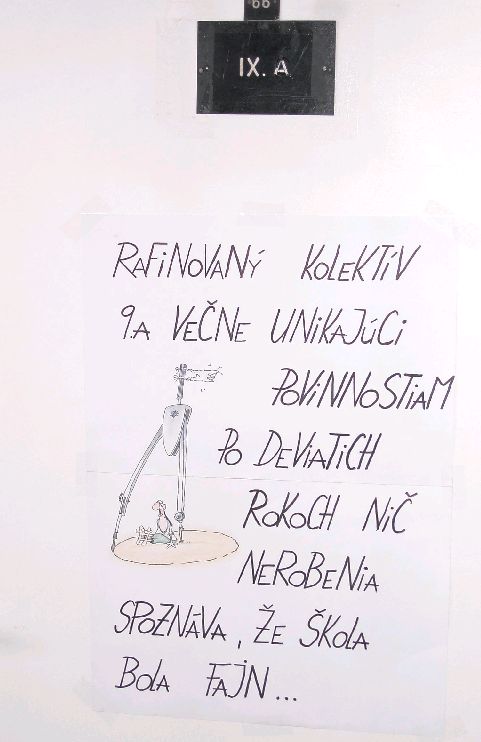 66
IX. A
RAFINOVANÝ KOLEKTÍV
9.A VEČNE UNIKAJÚCI
POVINNOSTIAM
PO DEVIATICH
ROKOCH NIČ
NEROBENIA
SPOZNÁVA, ŽE ŠKOLA
BOLA FAJN...